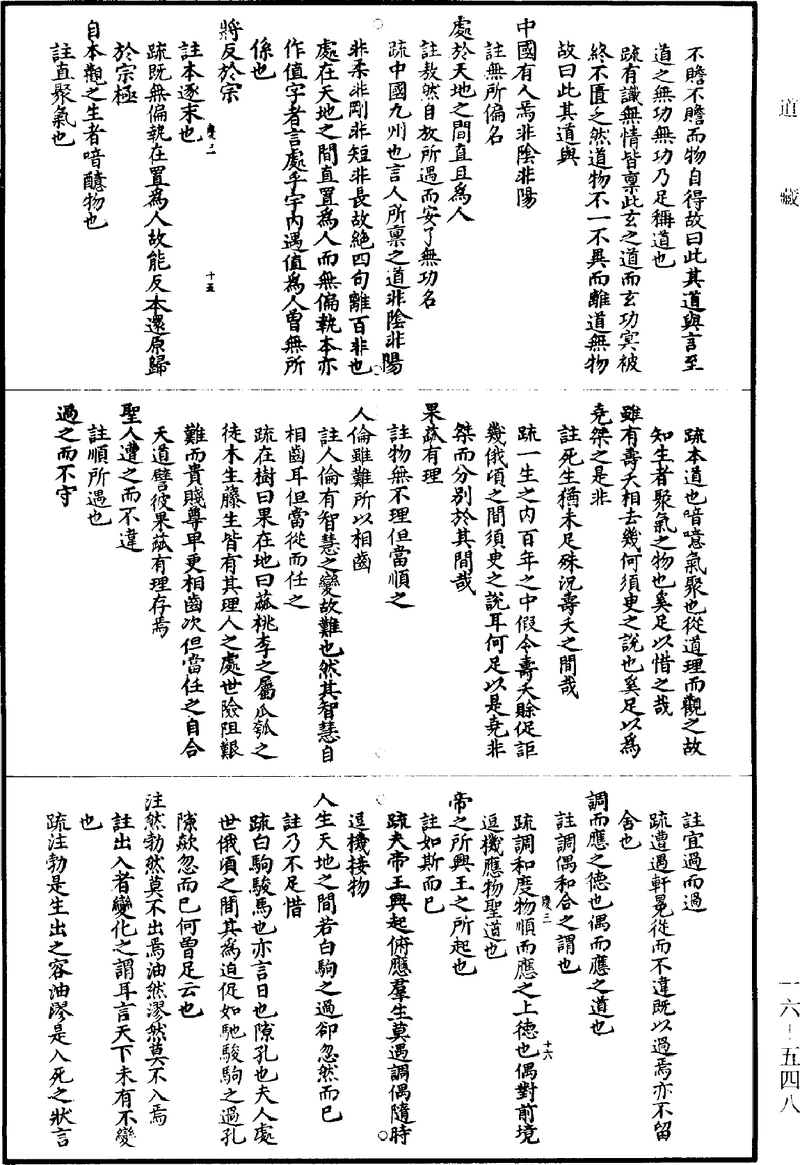 道藏
不贍不贍而物自得故曰此其道與言至
道之無功無功乃足稱道也
疏有識無情皆禀此玄之道而玄功冥被
終不匱乏然道物不一不異而離道無物
故曰此其道與
中國有人焉非陰非陽
註無所偏名
處於天地之間直且為人
註敖然自放所遇而安了無功名
疏中國九州也言人所禀之道非陰非陽
非柔非剛非短非長故絶四句離百非也
處在天地之間直置為人而無偏執本亦
作值字者言處乎宇内遇值為人曾無所
係也
將反於宗
註本逐末也
慶三
十五
疏既無偏執在置為人故能反本還原歸
於宗極
自本觀之生者喑醷物也
註直聚氣也
疏本道也喑噫氣聚也從道理而觀之故
知生者聚氣之物也奚足以惜之哉
雖有壽夭相去幾何須臾之說也奚足以為
堯桀之是非
註死生猶未足殊況壽夭之間哉
疏一生之内百年之中假令壽夭賒促詎
幾俄頃之間須臾之說耳何足以是堯非
桀而分别於其間哉
果蓏有理
註物無不理但當順之
人倫雖難所以相齒
註人倫有智慧之變故難也然其智慧自
相齒耳但當從而任之
疏在樹曰果在地曰蓏桃李之屬瓜瓠之
徒木生藤生皆有其理人之處世險阻艱
難而貴賤尊卑更相齒次但當任之自合
天道譬彼果蓏有理存焉
聖人遭之而不違
註順所遇也
過之而不守
註宜過而過
疏遭遇軒冕從而不違既以過焉亦不留
舍也
調而應之德也偶而應之道也
註調偶和合之謂也
慶三
十六
疏調和庶物順而應之上德也偶對前境
逗機應物聖道也
帝之所興王之所起也
註如斯而已
疏夫帝王興起俯應羣生莫過調偶隨時
逗機接物
人生天地之間若白駒之過卻忽然而已
註乃不足惜
疏白駒駿馬也亦言日也隙孔也夫人處
世俄頃之間其為迫促如馳駿駒之過孔
隙歘忽而已何曾足云也
注然勃然莫不出焉油然漻然莫不入焉
註出入者變化之謂耳言天下未有不變
也
疏注勃是生出之容油漻是入死之狀言
一六－五四八